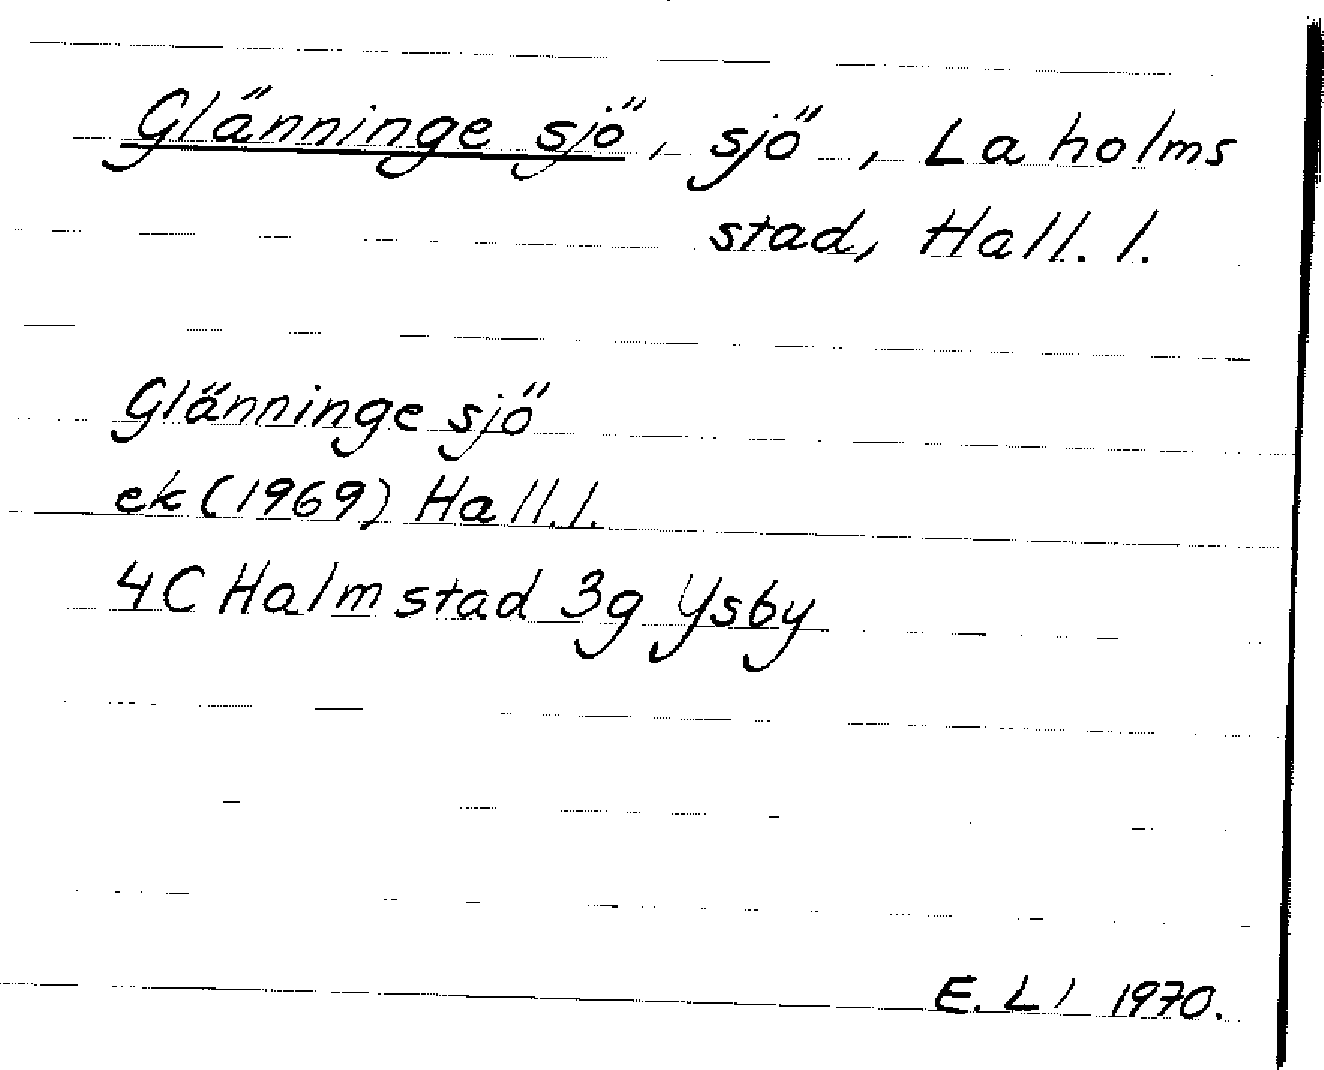 Glänninge sjö, sjö, Laholms
stad, Hall. l.
Glänninge sjö
ek (1969) Hall. l.
4C Halmstad 3g Ysby
E. Ll 1970.